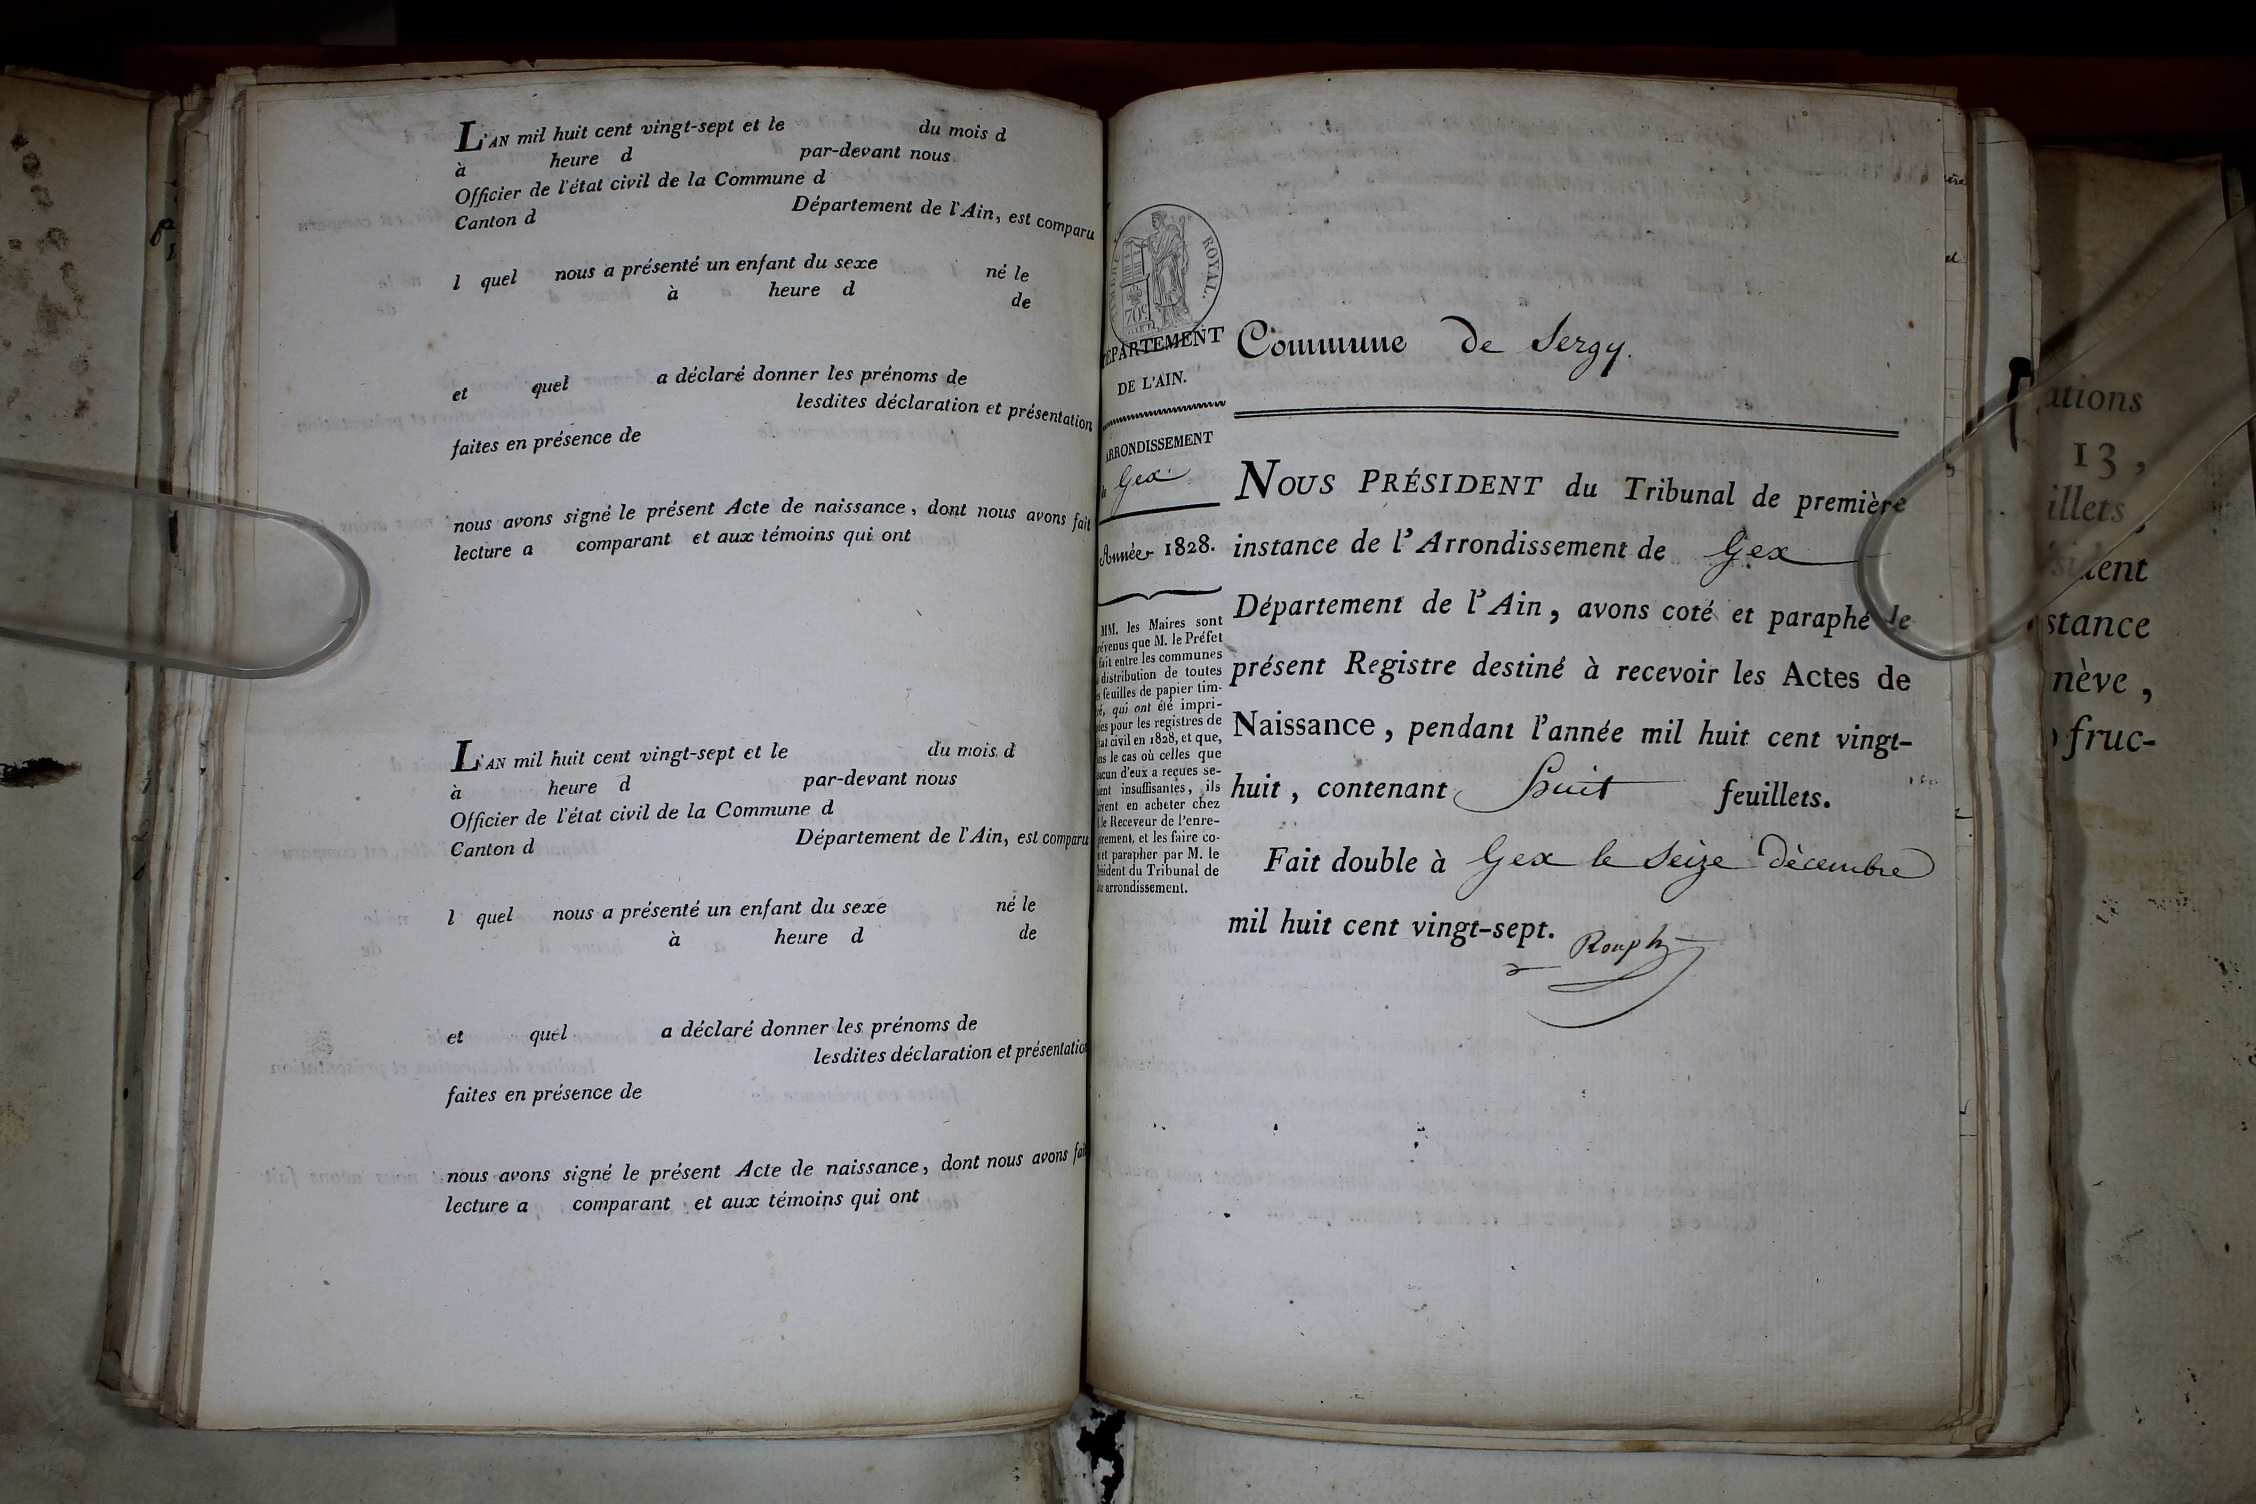 L'AN mil huit cent vingt-sept et le du mois d
à heure d par-devant nous
Officier de l'état civil de la Commune d
Canton d Département de l'Ain, est comparu
l quel nous a présenté un enfant du sexe né le
à heure d de
et quel a déclaré donner les prénoms de
lesdites déclaration et présentation
faites en présence de
nous avons signé le présent Acte de naissance, dont nous avons fait
lecture a comparant et aux témoins qui ont
L'AN mil huit cent vingt-sept et le du mois d
à heure d par-devant nous
Officier de l'état civil de la Commune d
Canton d Département de l'Ain, est comparu
l quel nous a présenté un enfant du sexe né le
à heure d de
et quel a déclaré donner les prénoms de
lesdites déclaration et présentatio
faites en présence de
nous avons signé le présent Acte de naissance, dont nous avons fai
lecture a comparant et aux témoins qui ont
ROYAL.
70c
ÉPARTEMENT
DE L'AIN.
ARRONDISSEMENT
Gex
Année 1828.
MM. les Maires sont
révenus que M. le Préfet
fait entre les communes
distribution de toutes
s feuilles de papier tim-
é, qui ont été impri-
ées pour les registres de
état civil en 1828, et que,
ns le cas où celles que
acun d'eux a reçues se-
ient insuffisantes, ils
ivent en acheter chez
le Receveur de l'enre-
rement, et les faire co-
et parapher par M. le
ésident du Tribunal de
arrondissement.
Commune de Sergy.
NOUS PRÉSIDENT du Tribunal de première
instance de l'Arrondissement de Gex
Département de l'Ain, avons coté et paraphé le
présent Registre destiné à recevoir les Actes de
Naissance, pendant l'année mil huit cent vingt-
huit, contenant huit feuillets.
Fait double à Gex le Seize décembre
mil huit cent vingt-sept.
ations
13,
illets
ident
stance
nève,
fruc-